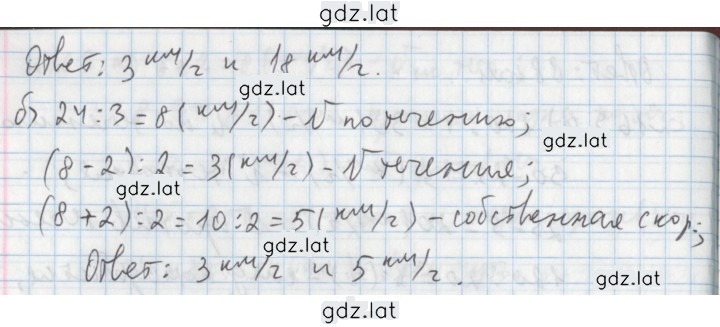 gdz.lat
Ответ: 3 км/г и 18 км/г.
gdz.lat
б) 24 : 3 = 8 (км/г) – V по течению;
(8 – 2) : 2 = 3 (км/г) – V течения;
gdz.lat
(8 + 2) : 2 = 10 : 2 = 5 (км/г) – собственная скор.;
gdz.lat
Ответ: 3 км/г и 5 км/г.
gdz.lat
gdz.lat